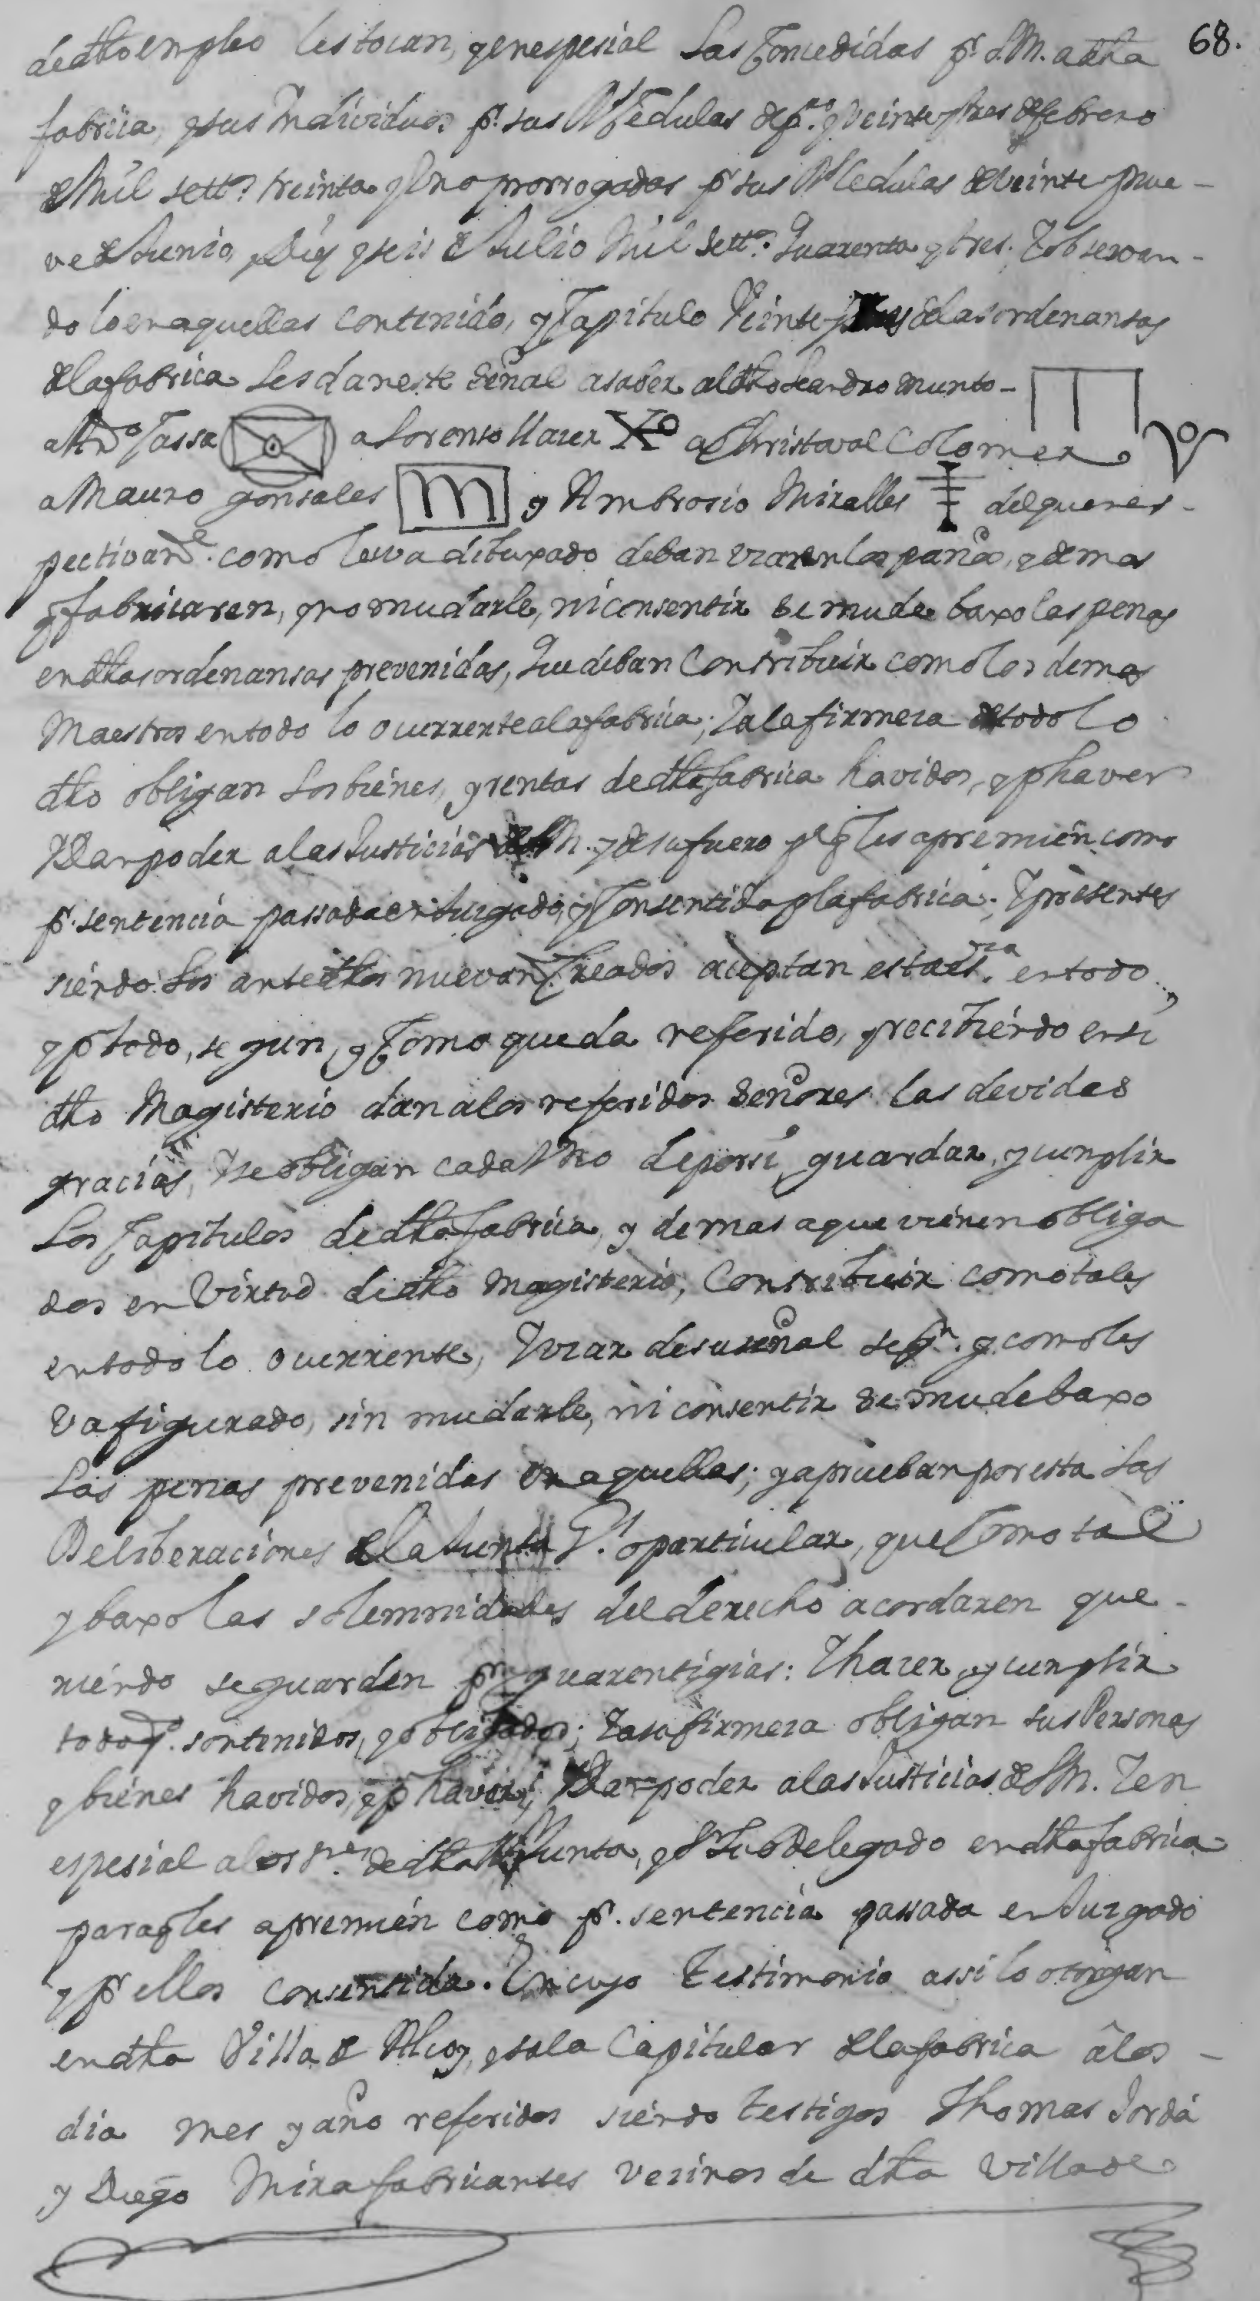 68.
de dho empleo les tocan, y en espesial las Comcedidas pr. S.M. a dha
fabrica, y sus Individuos pr. sus Rs Cedulas de pro. y Veinte y tres de febrero
de Mil setts. treinta y Uno prorrogadas pr sus Rs Cedulas de Veinte y nue-
ve de Junio, y Diez y seis de Julio Mil setts. Quarenta y tres; Y observan-
do lo en aquellas contenido, y Capitulo Veinte y de las ordenansas
de la fabrica les dan este señal a saber al dho Leandro Munto-
a Jassa a Lorenso Llacer a Christoval Colomer
a Mauro gonsales y Ambrosio Miralles del que res-
pectivamte. como le va dibuxado deban usar en los paños, y demas
q fabricaren, y no mudarle, ni consentir se mude baxo las penas
en dhas ordenansas prevenidas, Que deban Contribuir como los demas
Maestros en todo lo ocurrente a la fabrica; Y a la firmeza de todo lo
dho obligan los biénes, y rentas de dha fabrica havidos, y p haver
Y Dan poder a las Justicias de S.M. y de su fuero pa q les apremién como
pr. sentencia passada en Jusgado, y Consentida p la fabrica; Y presentes
siéndo los antedhos nuevamte. Creados aceptan esta essra. en todo
y p todo, segun, y Como queda referido, y recibiéndo en si
dho Magisterio dan a los referidos Señores las devidas
gracias, Y se obligan cada Uno de por si, guardar, y cumplir
Los Capitulos de dha fabrica, y demas a que viénen obliga
dos en Virtud de dho Magisterio, Contribuir como tales
en todo lo ocurrente, Y usar de su señal segn. y como les
va figurado, sin mudarle, ni consentir se mude baxo
Las penas prevenidas en aquellas; y aprueban por esta las
Deliberaciones de la Junta Gl. o particular, que Como tal
y baxo las solemnidades del derecho acordaren que-
riéndo se guarden pr guarentigias: Y hacer, y cumplir
todo sontenidos, y obligados; Y a su firmeza obligan sus Personas
y biénes havidos, y p haver; Y Dan poder a las Justicias de S.M. Y en
espesial a los Sres. de dha Rl Junta, y Sr Subdelegado en dha fabrica
para q les apremién como pr. sentencia passada en Jusgado
y pr ellos consentida. En cuyo Testimonio assi lo otorgan
en dha Villa de Alcoy, y sala Capitular de la fabrica â los-
dia mes y año referidos siéndo testigos Thomas Jordá
y Diego Mira fabricantes vecinos de dha Villa de